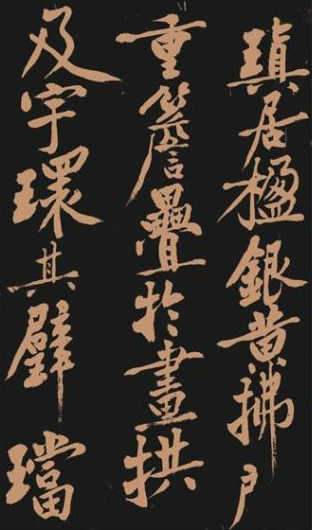 瑱居楹銀黃拂戶
重簷疊於畫拱
及宇環其璧璫